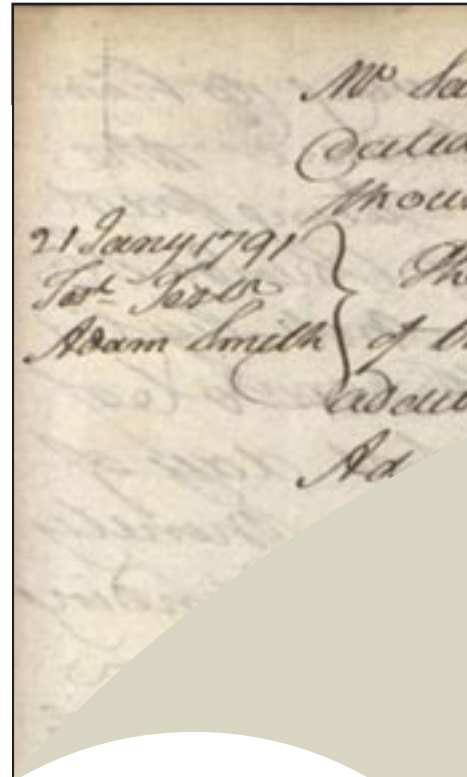 Mr Sa
dated
thou
21 Jany 1791
Test. Testr
Adam Smith
Th
of th
adduc
Ad